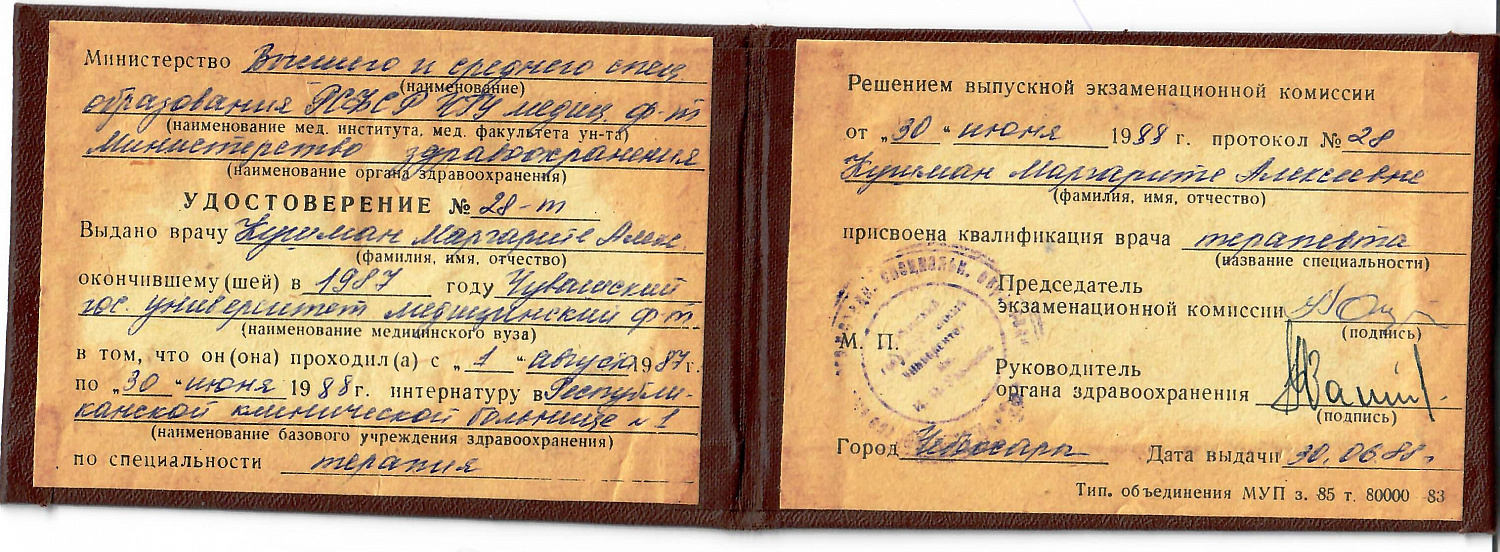 Министерство Высшего и среднего спец
(наименование)
образования РСФСР ЧГУ медиц. ф-т
(наименование мед. института, мед. факультета ун-та)
Министерство здравоохранения
(наименование органа здравоохранения)
УДОСТОВЕРЕНИЕ № 28-т
Выдано врачу Кушман Маргарите Алекс.
(фамилия, имя, отчество)
окончившему (шей) в 1987 году Чувашский
гос. университет медицинский ф-т
(наименование медицинского вуза)
в том, что он (она) проходил (а) с „1“ августа 1987 г.
по „30“ июня 1988 г. интернатуру в Республи-
канской клинической больнице №1
(наименование базового учреждения здравоохранения)
по специальности терапия
Решением выпускной экзаменационной комиссии
от „30“ июня 1988 г. протокол № 28
Кушман Маргарите Алексеевне
(фамилия, имя, отчество)
присвоена квалификация врача терапевта
(название специальности)
Председатель
экзаменационной комиссии
(подпись)
М. П.
Руководитель
органа здравоохранения
(подпись)
Город Чебоксары Дата выдачи 30.06.88 г.
Тип. объединения МУП з. 85 т. 80000 -83